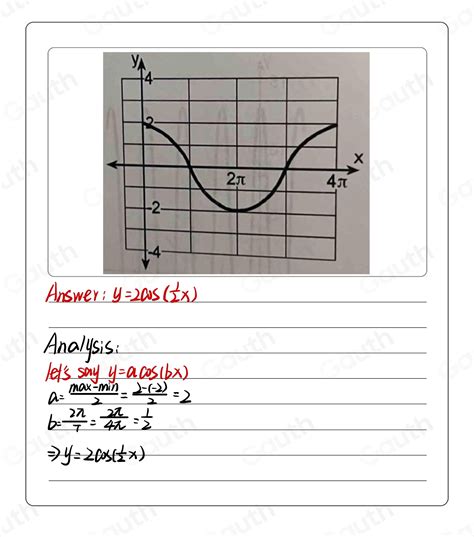 y
4
2
x
2π
4π
-2
-4
Answer: y=2cos(½x)
Analysis:
let's say y=acos(bx)
a= max-min/2 = 2-(-2)/2 =2
b= 2π/T = 2π/4π = 1/2
⇒y=2cos(½x)
Gauth